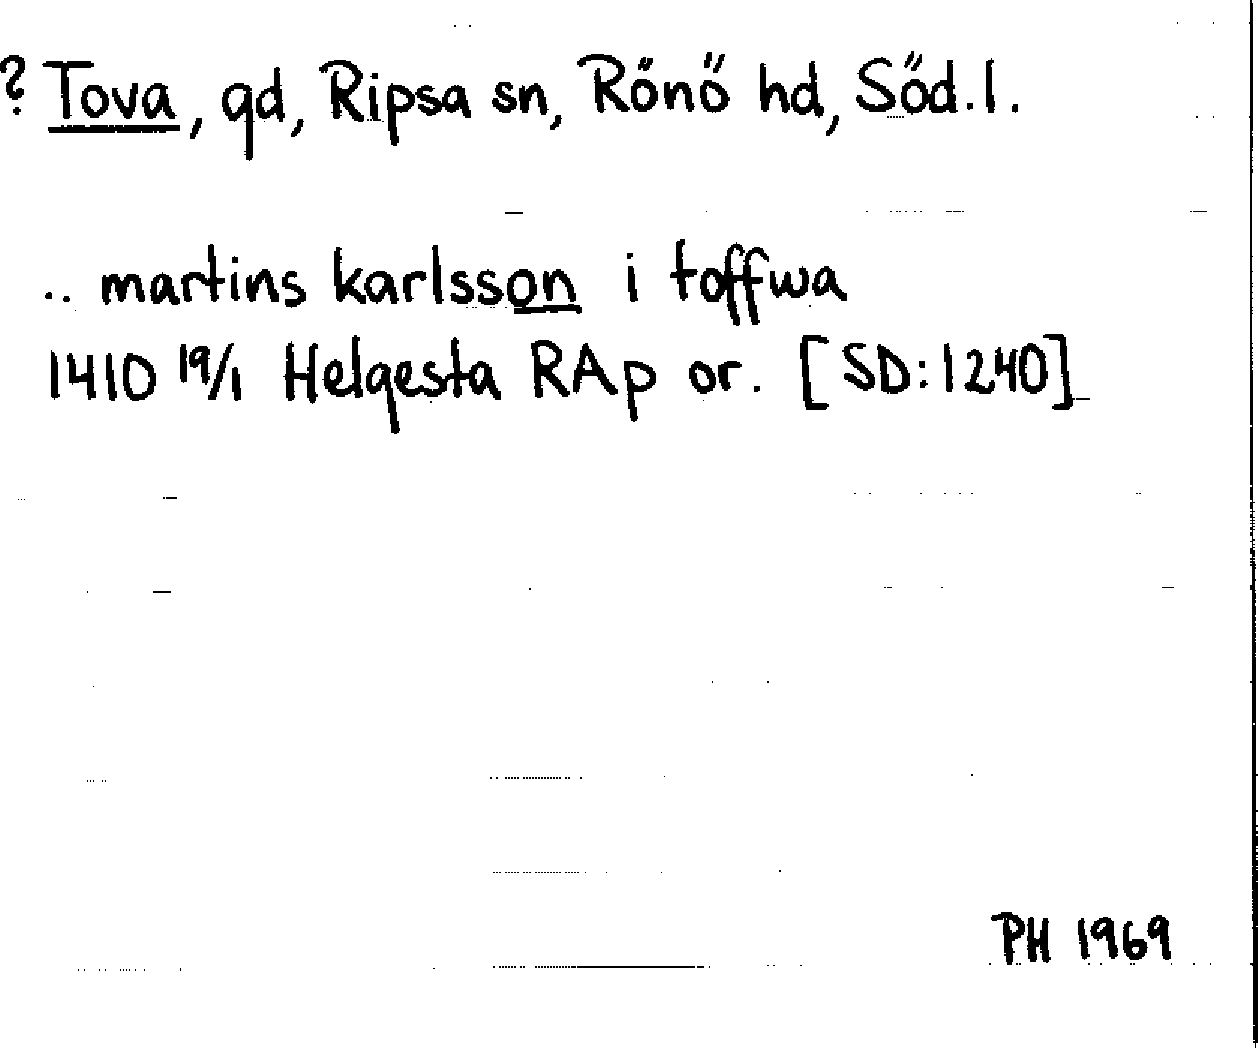 ? Tova, gd, Ripsa sn, Rönö hd, Söd.l.
.. martins karlsson i toffwa
1410 19/1 Helgesta RAp or. [SD:1240]
PH 1969